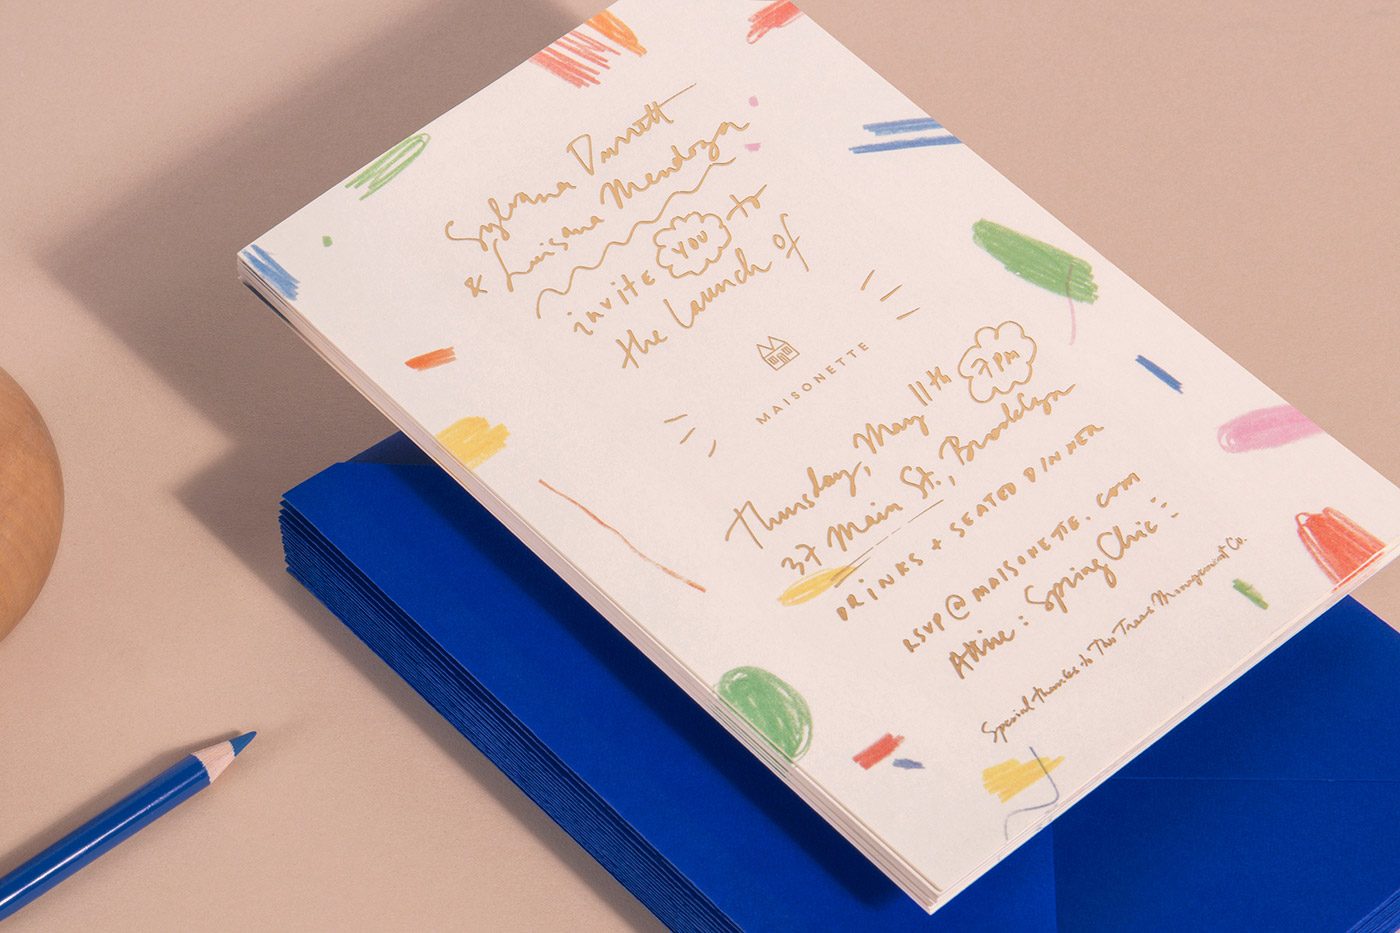 Sylvana Durrett
& Luisana Mendoza
invite YOU to
the launch of
MAISONETTE
Thursday, May 11th 7PM
37 Main St., Brooklyn
DRINKS + SEATED DINNER
RSVP@MAISONETTE.COM
Attire: Spring Chic
Special thanks to The Treas Management Co.